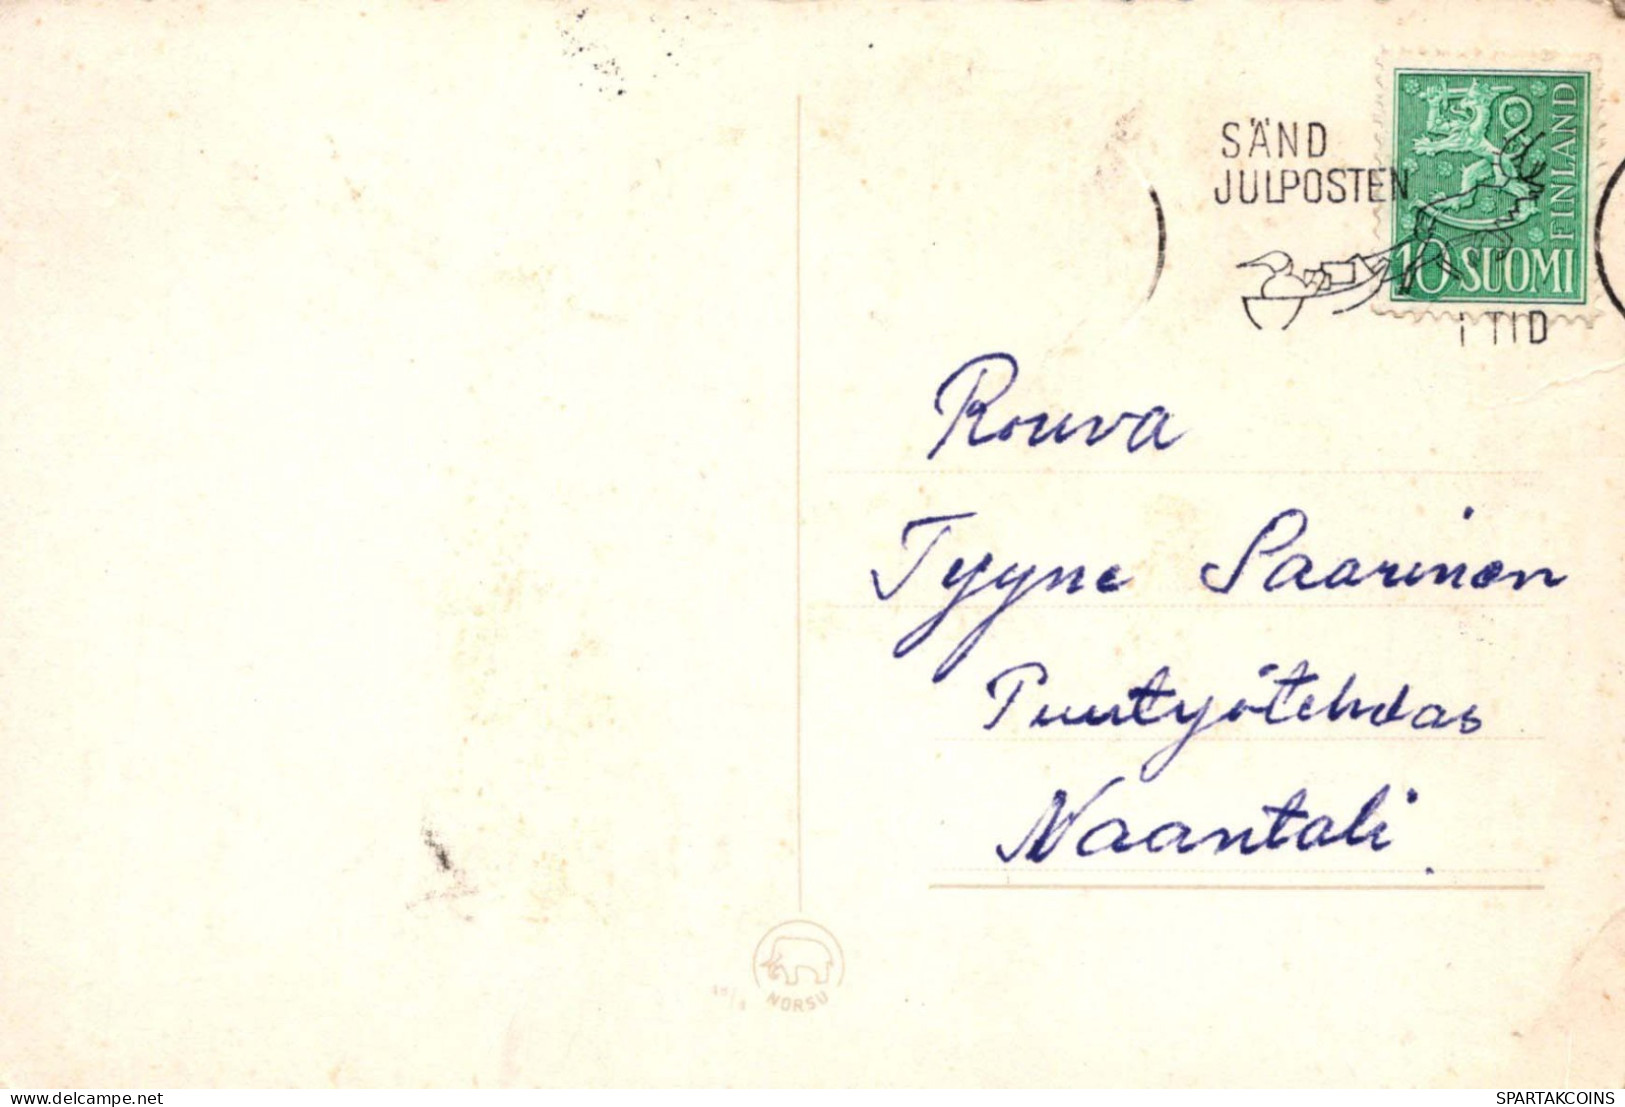 SÄND
JULPOSTEN
i TID
FINLAND
10 SUOMI
Rouva
Tyyne Saarinen
Puutyötehdas
Naantali.
NORSU
delcampe.net
SPARTAKCOINS